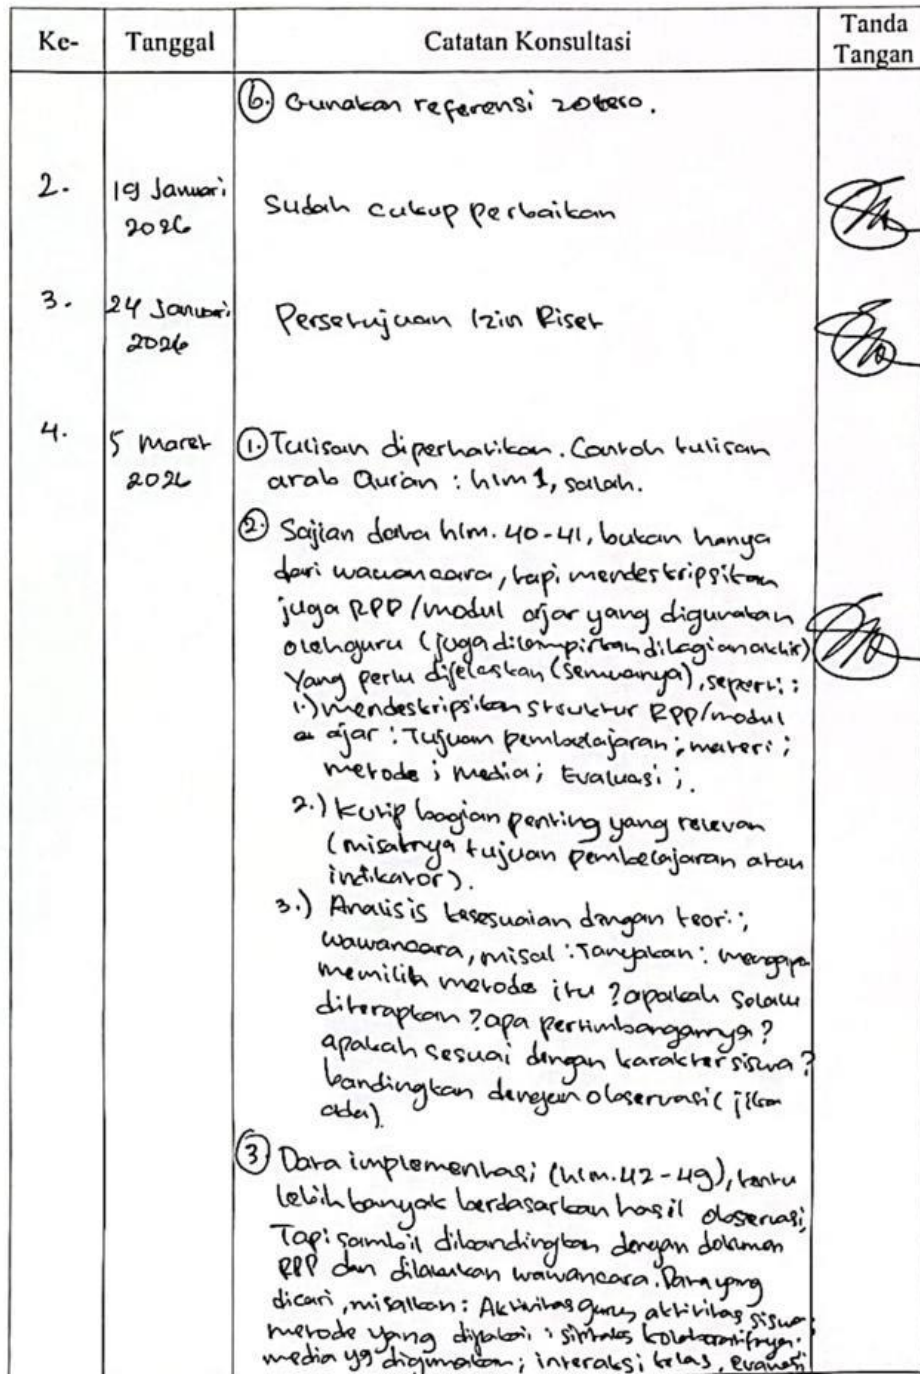 Ke- Tanggal Catatan Konsultasi Tanda Tangan
6. Gunakan referensi zotero.
2. 19 Januari 2026 Sudah cukup perbaikan
3. 24 Januari 2026 Persetujuan Izin Riset
4. 5 Maret 2026 1. Tulisan diperhatikan. Contoh tulisan
arab Qur'an : hlm 1, salah.
2. Sajian data hlm. 40-41, bukan hanya
dari wawancara, tapi mendeskripsikan
juga RPP/modul ajar yang digunakan
oleh guru (juga dilampirkan dibagian akhir)
Yang perlu dijelaskan (semuanya), seperti :
1.) mendeskripsikan struktur RPP/modul
ajar : Tujuan pembelajaran ; materi ;
metode ; media ; Evaluasi ;.
2.) Kutip bagian penting yang relevan
(misalnya tujuan pembelajaran atau
indikator).
3.) Analisis kesesuaian dengan teori ;
wawancara, misal : Tanyakan : mengapa
memilih metode itu ? apakah selalu
diterapkan ? apa pertimbangannya ?
apakah sesuai dengan karakter siswa ?
bandingkan dengan observasi ( jika
ada).
3. Data implementasi (hlm. 42-49), tentu
lebih banyak berdasarkan hasil observasi,
Tapi sambil dibandingkan dengan dokumen
RPP dan dilakukan wawancara. Data yang
dicari, misalkan : Aktivitas guru, aktivitas siswa ;
metode yang dipakai ; sintaks kolaboratifnya.
media yg digunakan ; interaksi kelas, evaluasi